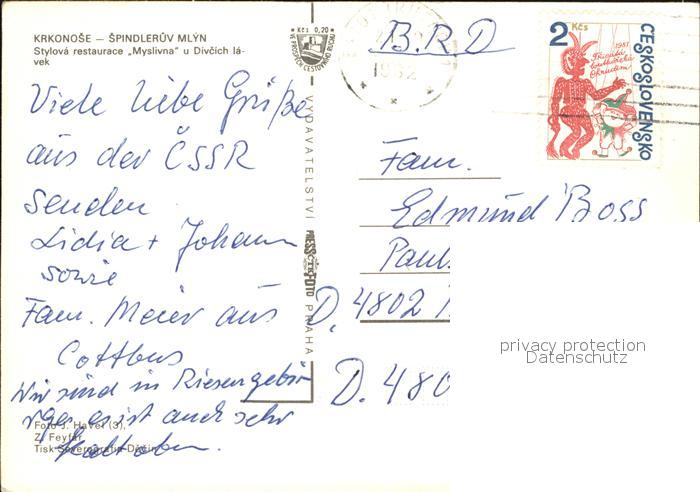 KRKONOŠE — ŠPINDLERŮV MLÝN
Stylová restaurace „Myslivna" u Dívčích lá-
vek
Viele liebe Grüße
aus der ČSSR
senden
Lidia + Johann
sowie
Fam. Meier aus
Cottbus
Wir sind in Riesengebir
rge, es ist auch sehr
kalt oben.
Foto J. Havel (3),
Z. Feyfar
Tisk Severografia Děčín
Kčs 0,20
VE PROSPĚCH CESTOVNÍHO RUCHU
VYDAVATELSTVÍ
PRESSFOTO
ČTK
PRAHA
1982
B.R.D
2 Kčs
1981
ČESKOSLOVENSKO
Fam.
Edmund Boss
Paul
D. 4802
D. 480
privacy protection
Datenschutz